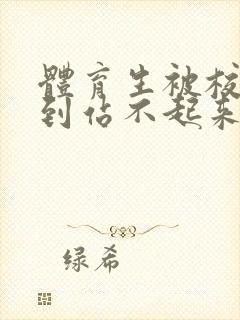 體育生被校
到佔不起来
绿希